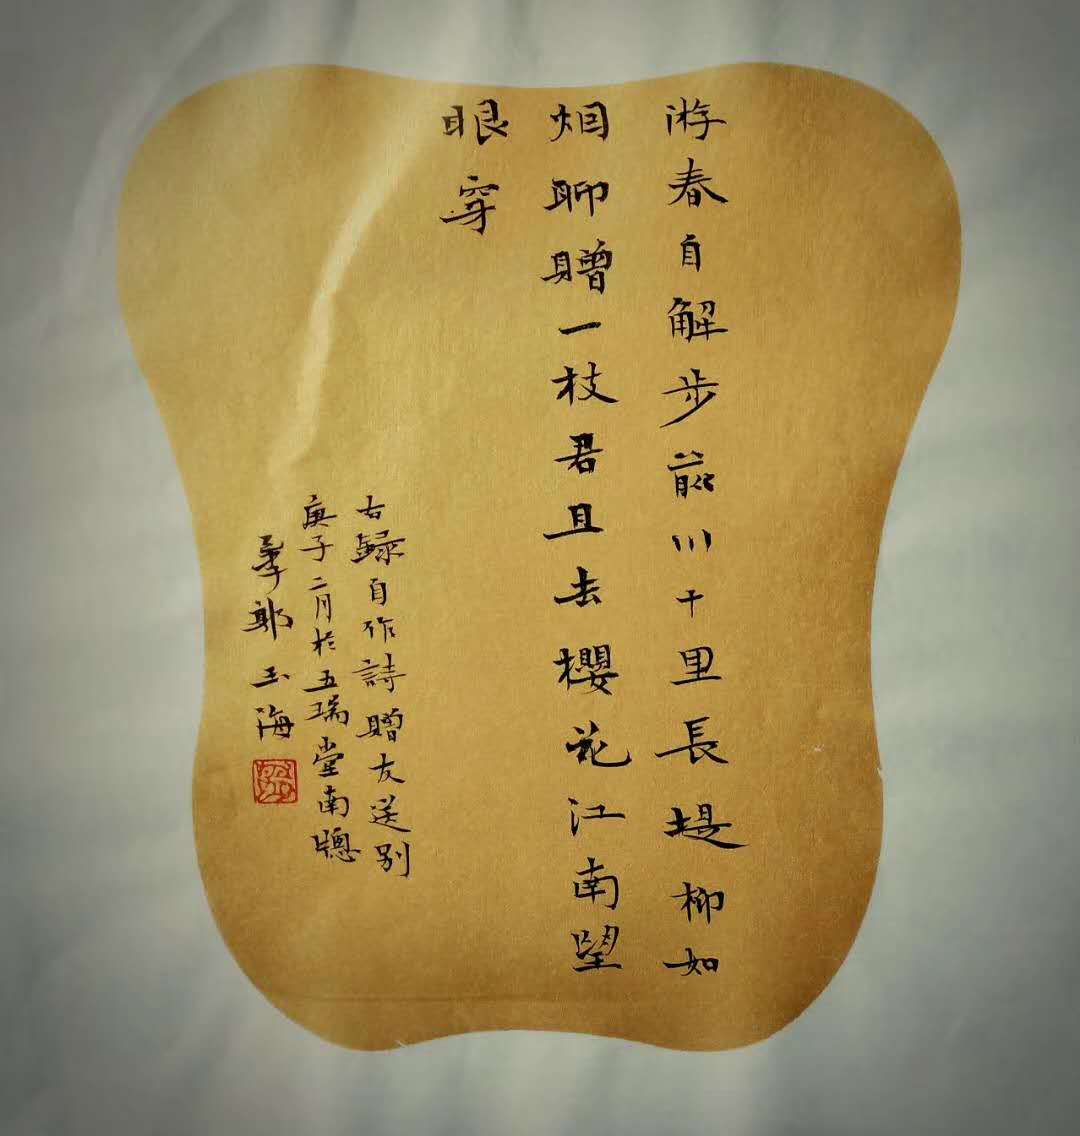 游春自解步前川十里長堤柳如
烟聊贈一枝君且去櫻花江南望
眼穿
右録自作詩贈友送别
庚子二月於五瑞堂南牕
郭玉海